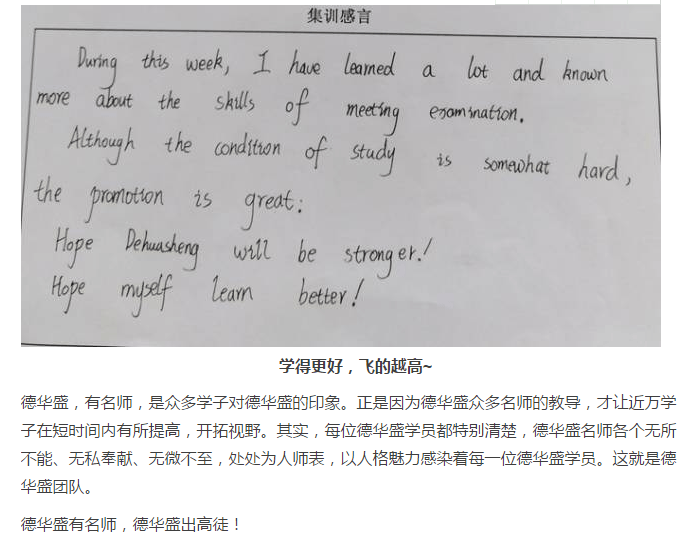 集训感言
During this week, I have learned a lot and known
more about the skills of meeting examination.
Although the condition of study is somewhat hard,
the promotion is great:
Hope Dehuasheng will be stronger!
Hope myself learn better!
学得更好，飞的越高~
德华盛，有名师，是众多学子对德华盛的印象。正是因为德华盛众多名师的教导，才让近万学
子在短时间内有所提高，开拓视野。其实，每位德华盛学员都特别清楚，德华盛名师各个无所
不能、无私奉献、无微不至，处处为人师表，以人格魅力感染着每一位德华盛学员。这就是德
华盛团队。
德华盛有名师，德华盛出高徒！